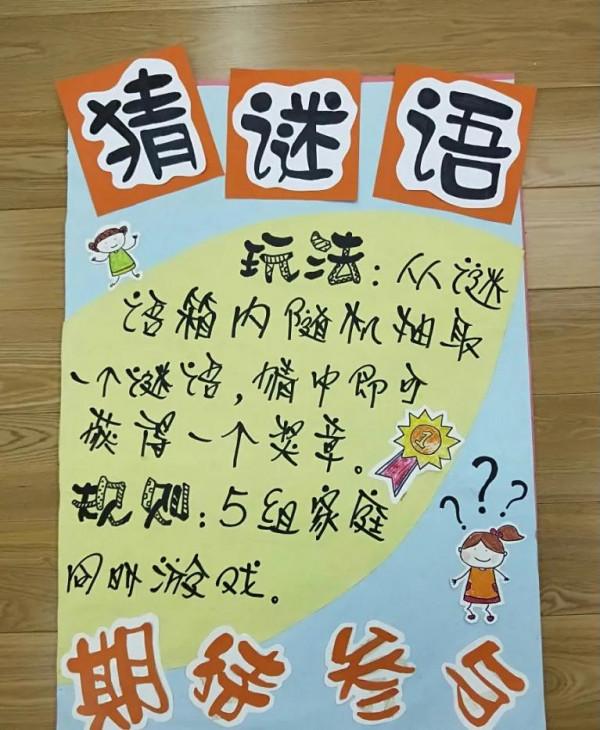 猜谜语
玩法：从谜
语箱内随机抽取
一个谜语，猜中即可
获得一个奖章。
规则：5组家庭
同时游戏。
期待参与